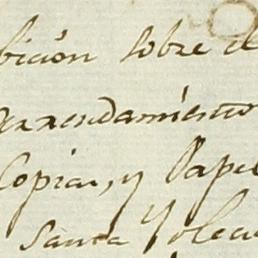 bición sobre el
Arrendamiento
Copias, y Pape
Santa Yolea